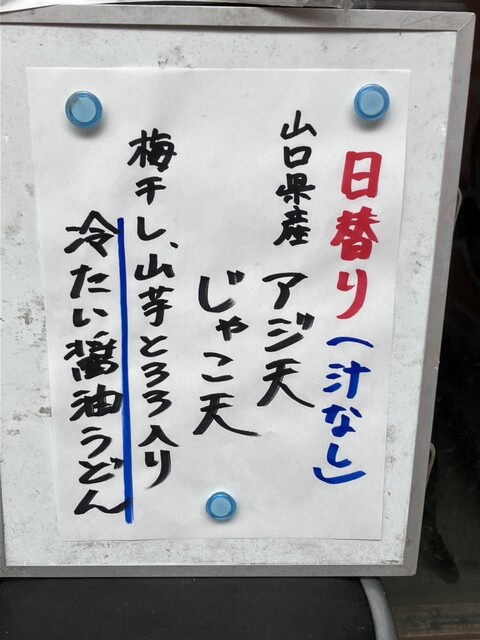 日替り(汁なし)
山口県産 アジ天
じゃこ天
梅干し、山芋とろろ入り
冷たい醤油うどん